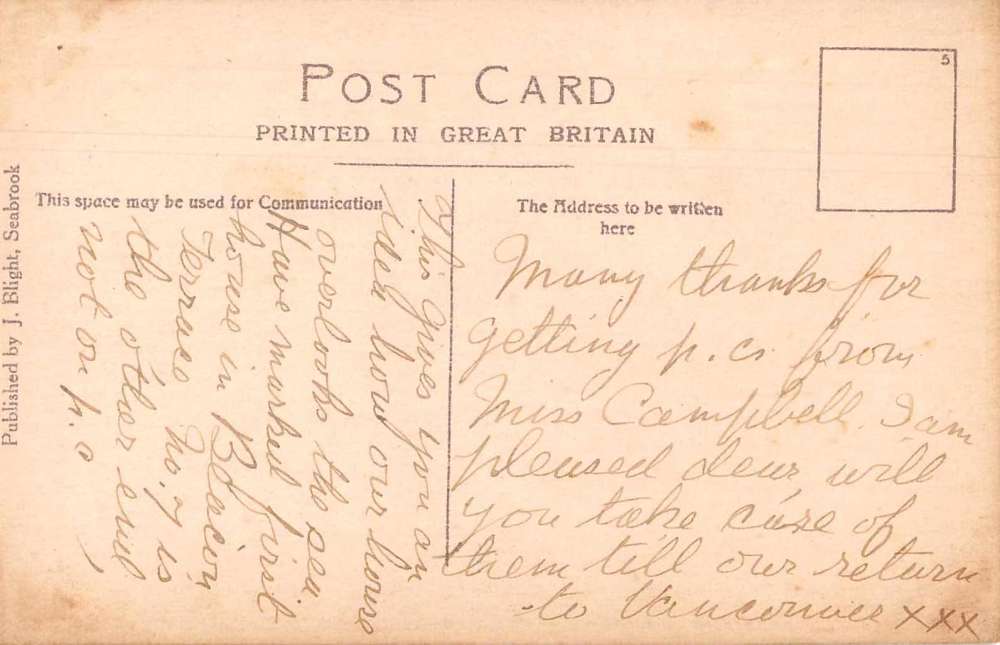 POST CARD
PRINTED IN GREAT BRITAIN
5
Published by J. Blight, Seabrook
This space may be used for Communication
This gives you an
idea how our house
overlooks the sea
Have marked first
house in
Terrace No. 7 is
the other end
not on p.c
The Address to be written
here
Many thanks for
getting p.cs. from
Miss Campbell. I am
pleased dear will
you take care of
them till our return
to Vancouver xxx